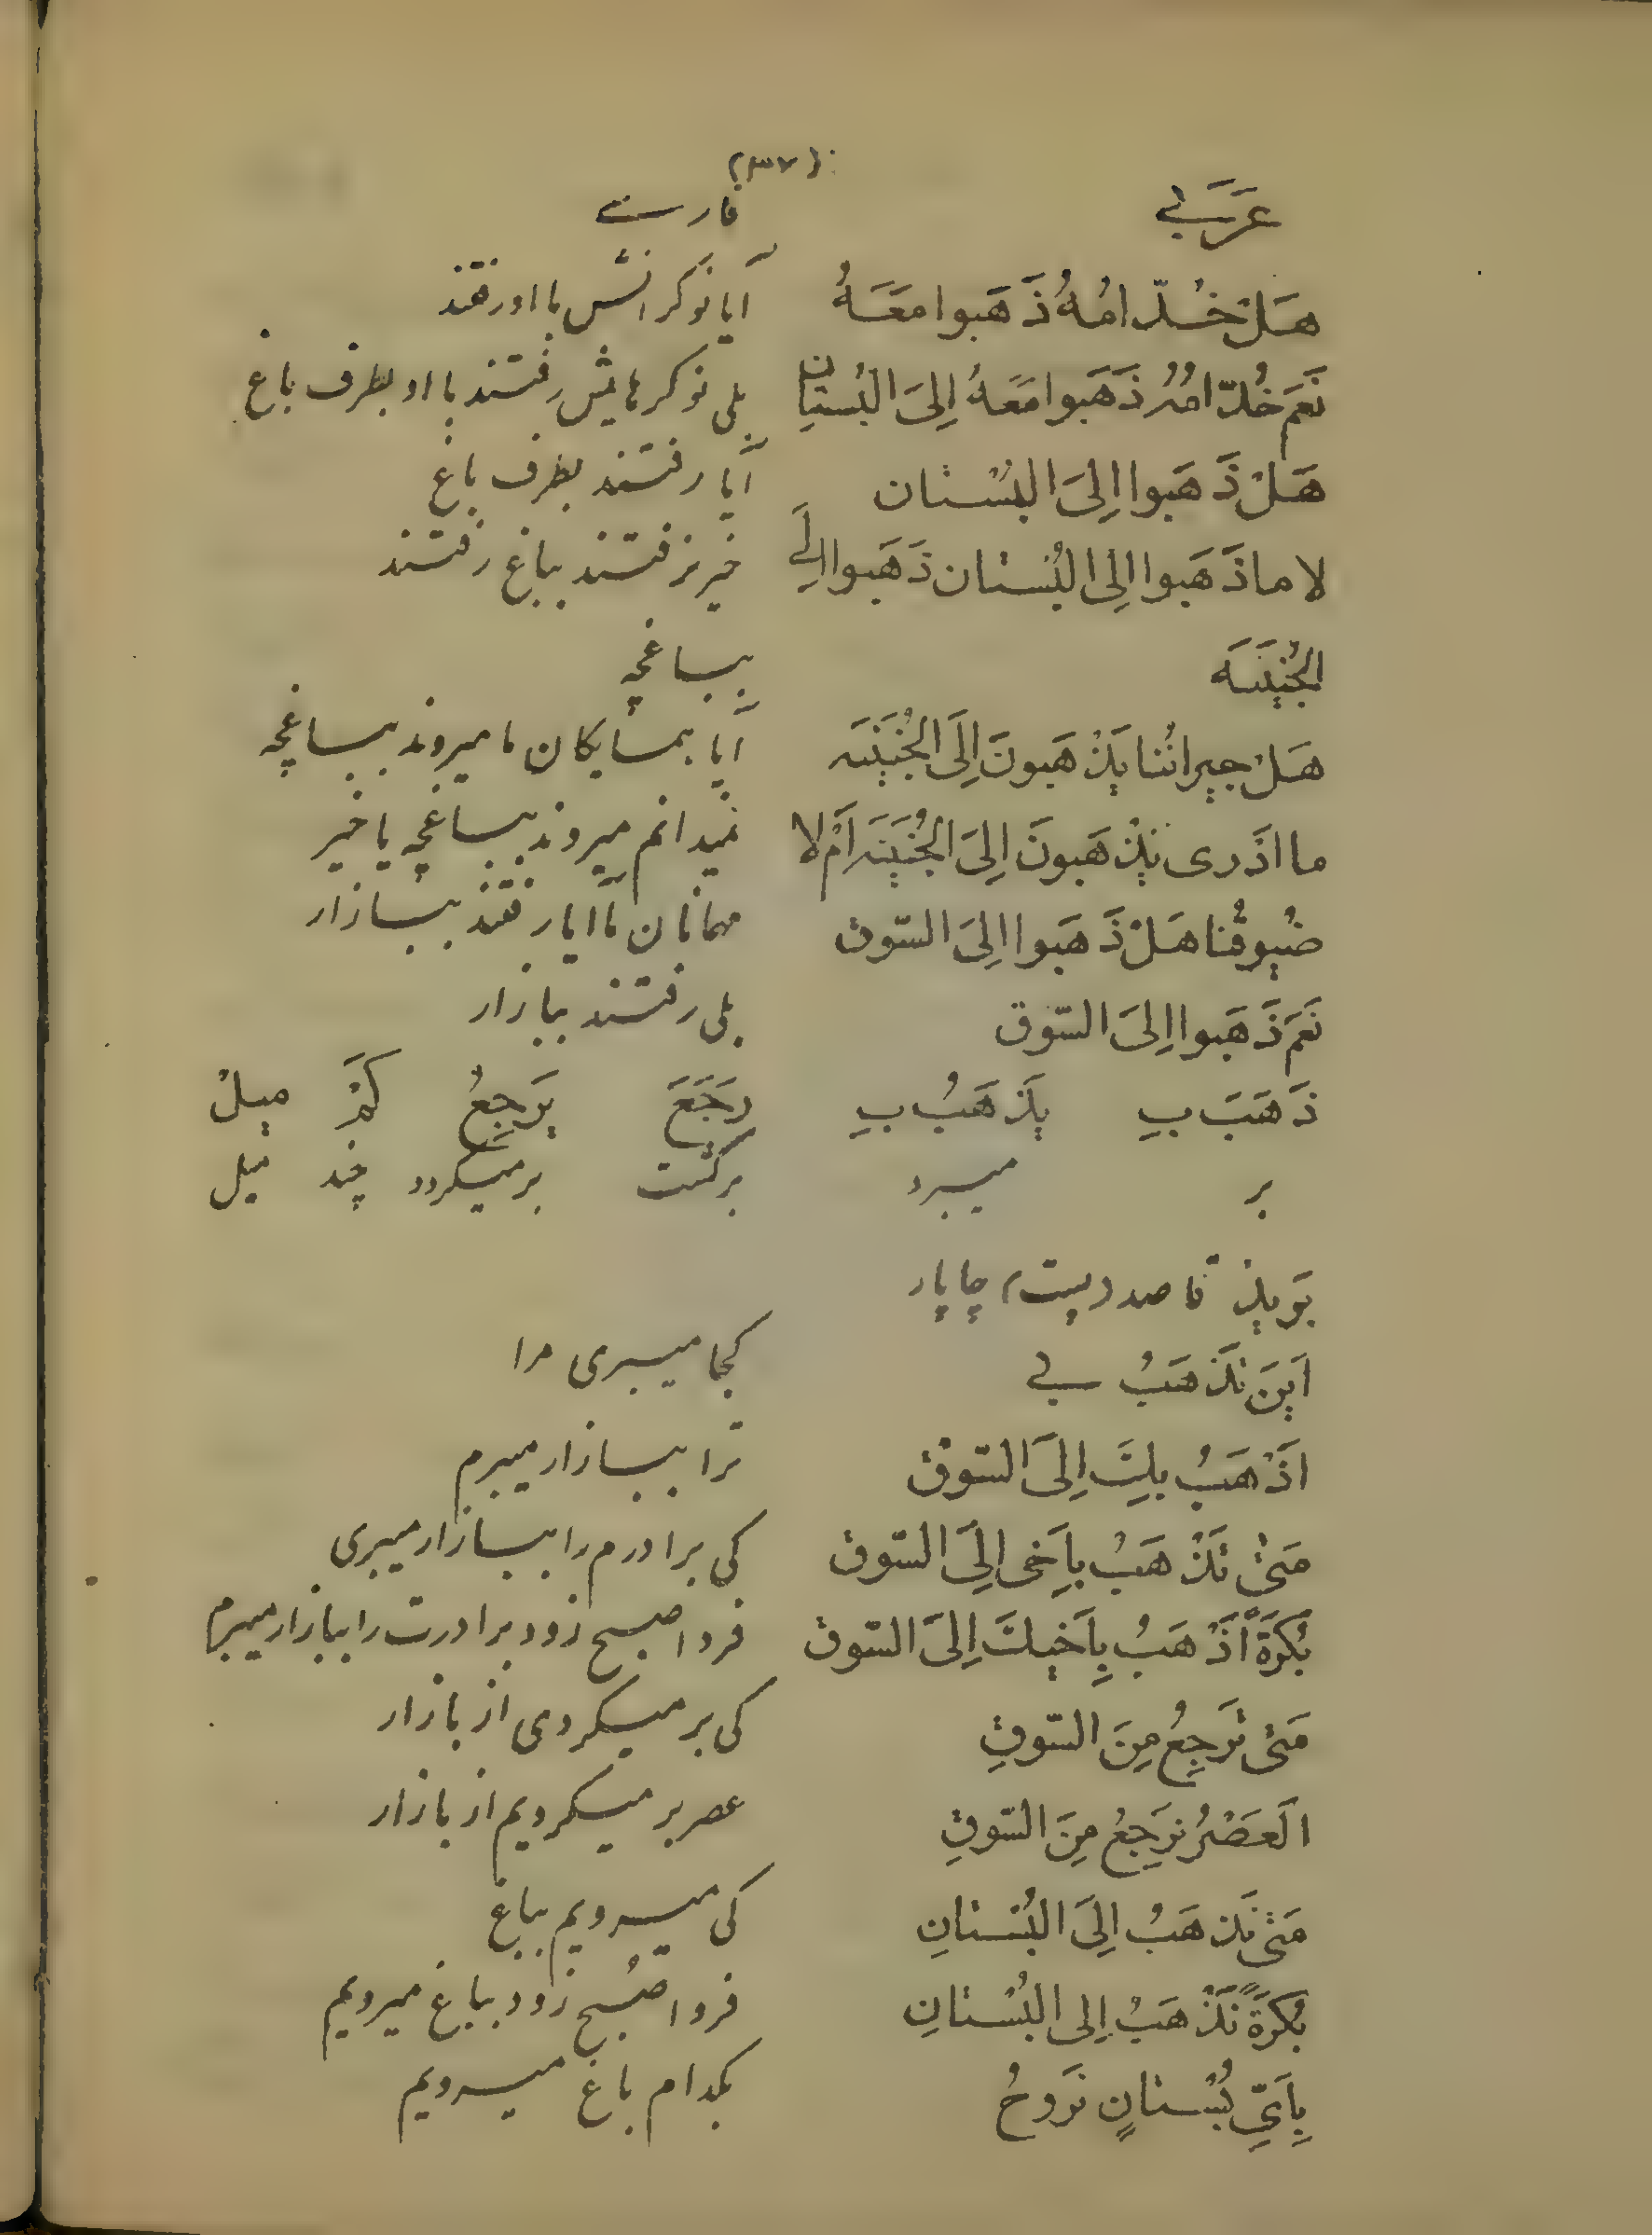 (۳۷)
عَرَبي فارسی
هَلْ خُدّامُهُ ذَهَبوا مَعَهُ آیا نوکرانش با او رفتند
نَعَم خُدّامُهُ ذَهَبوا مَعَهُ اِلَى البُستان بلی نوکرهایش رفتند با او بطرف باغ
هَلْ ذَهَبوا اِلَى البُسْتان آیا رفتند بطرف باغ
لا ما ذَهَبوا اِلى البُستان ذَهَبوا اِلَى خیر نرفتند بباغ رفتند
الجُنَيْنَه بباغچه
هَلْ جيرانُنا يَذْهَبونَ اِلَى الجُنَيْنَه آیا همسایکان ما میروند بباغچه
ما اَدْرى يَذْهَبونَ اِلَى الجُنَيْنَه اَمْ لا نمیدانم میروند بباغچه یا خیر
ضُيوفُنا هَلْ ذَهَبوا اِلَى السّوق مهمانان ما آیا رفتند ببازار
نَعَم ذَهَبوا اِلَى السّوق بلی رفتند ببازار
ذَهَبَ بِ يَذْهَبُ بِ رَجَعَ يَرجِعُ كَمْ ميلْ
برد میبرد برکشت برمیکردد چند میل
بَريد قاصد (پست) چاپار
اَيْنَ تَذْهَبُ بي کجا میبری مرا
اَذْهَبُ بِكَ اِلَى السّوق ترا ببازار میبرم
مَتى تَذْهَبُ بِاَخى اِلَى السّوق کی برادرم را ببازار میبری
بُكرَةً اَذْهَبُ بِاَخيكَ اِلَى السّوق فردا صبح زود برادرت را ببازار میبرم
مَتى تَرجِعُ مِنَ السّوقِ کی برمیکردی از بازار
اَلعَصْرُ نَرجِعُ مِنَ السّوقِ عصر برمیکردیم از بازار
مَتى نَذهَبُ اِلَى البُستانِ کی میرویم بباغ
بُكرَةً نَذْهَبُ اِلى البُسْتانِ فردا صُبح زود بباغ میرویم
بِاَيِّ بُستانٍ نَروحُ بکدام باغ میرویم